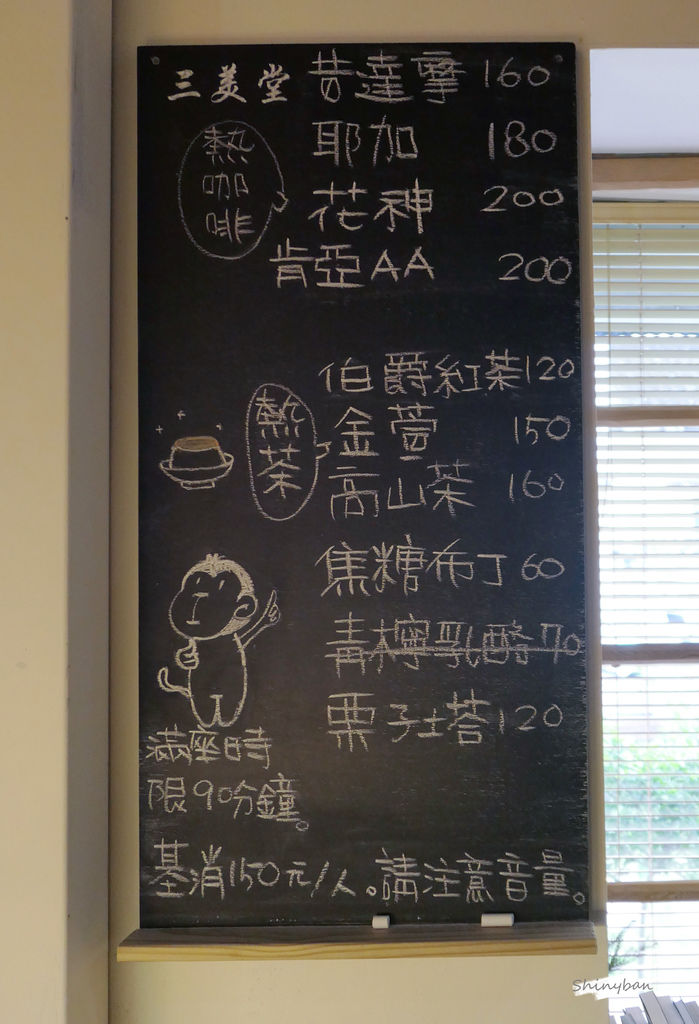 三美堂 昔達摩 160
熱咖啡
耶加 180
花神 200
肯亞AA 200
伯爵紅茶 120
熱茶
金萱 150
高山茶 160
焦糖布丁 60
青檸乳酪 70
栗子塔 120
滿座時
限90分鐘。
基消150元/人。請注意音量。
Shinyban